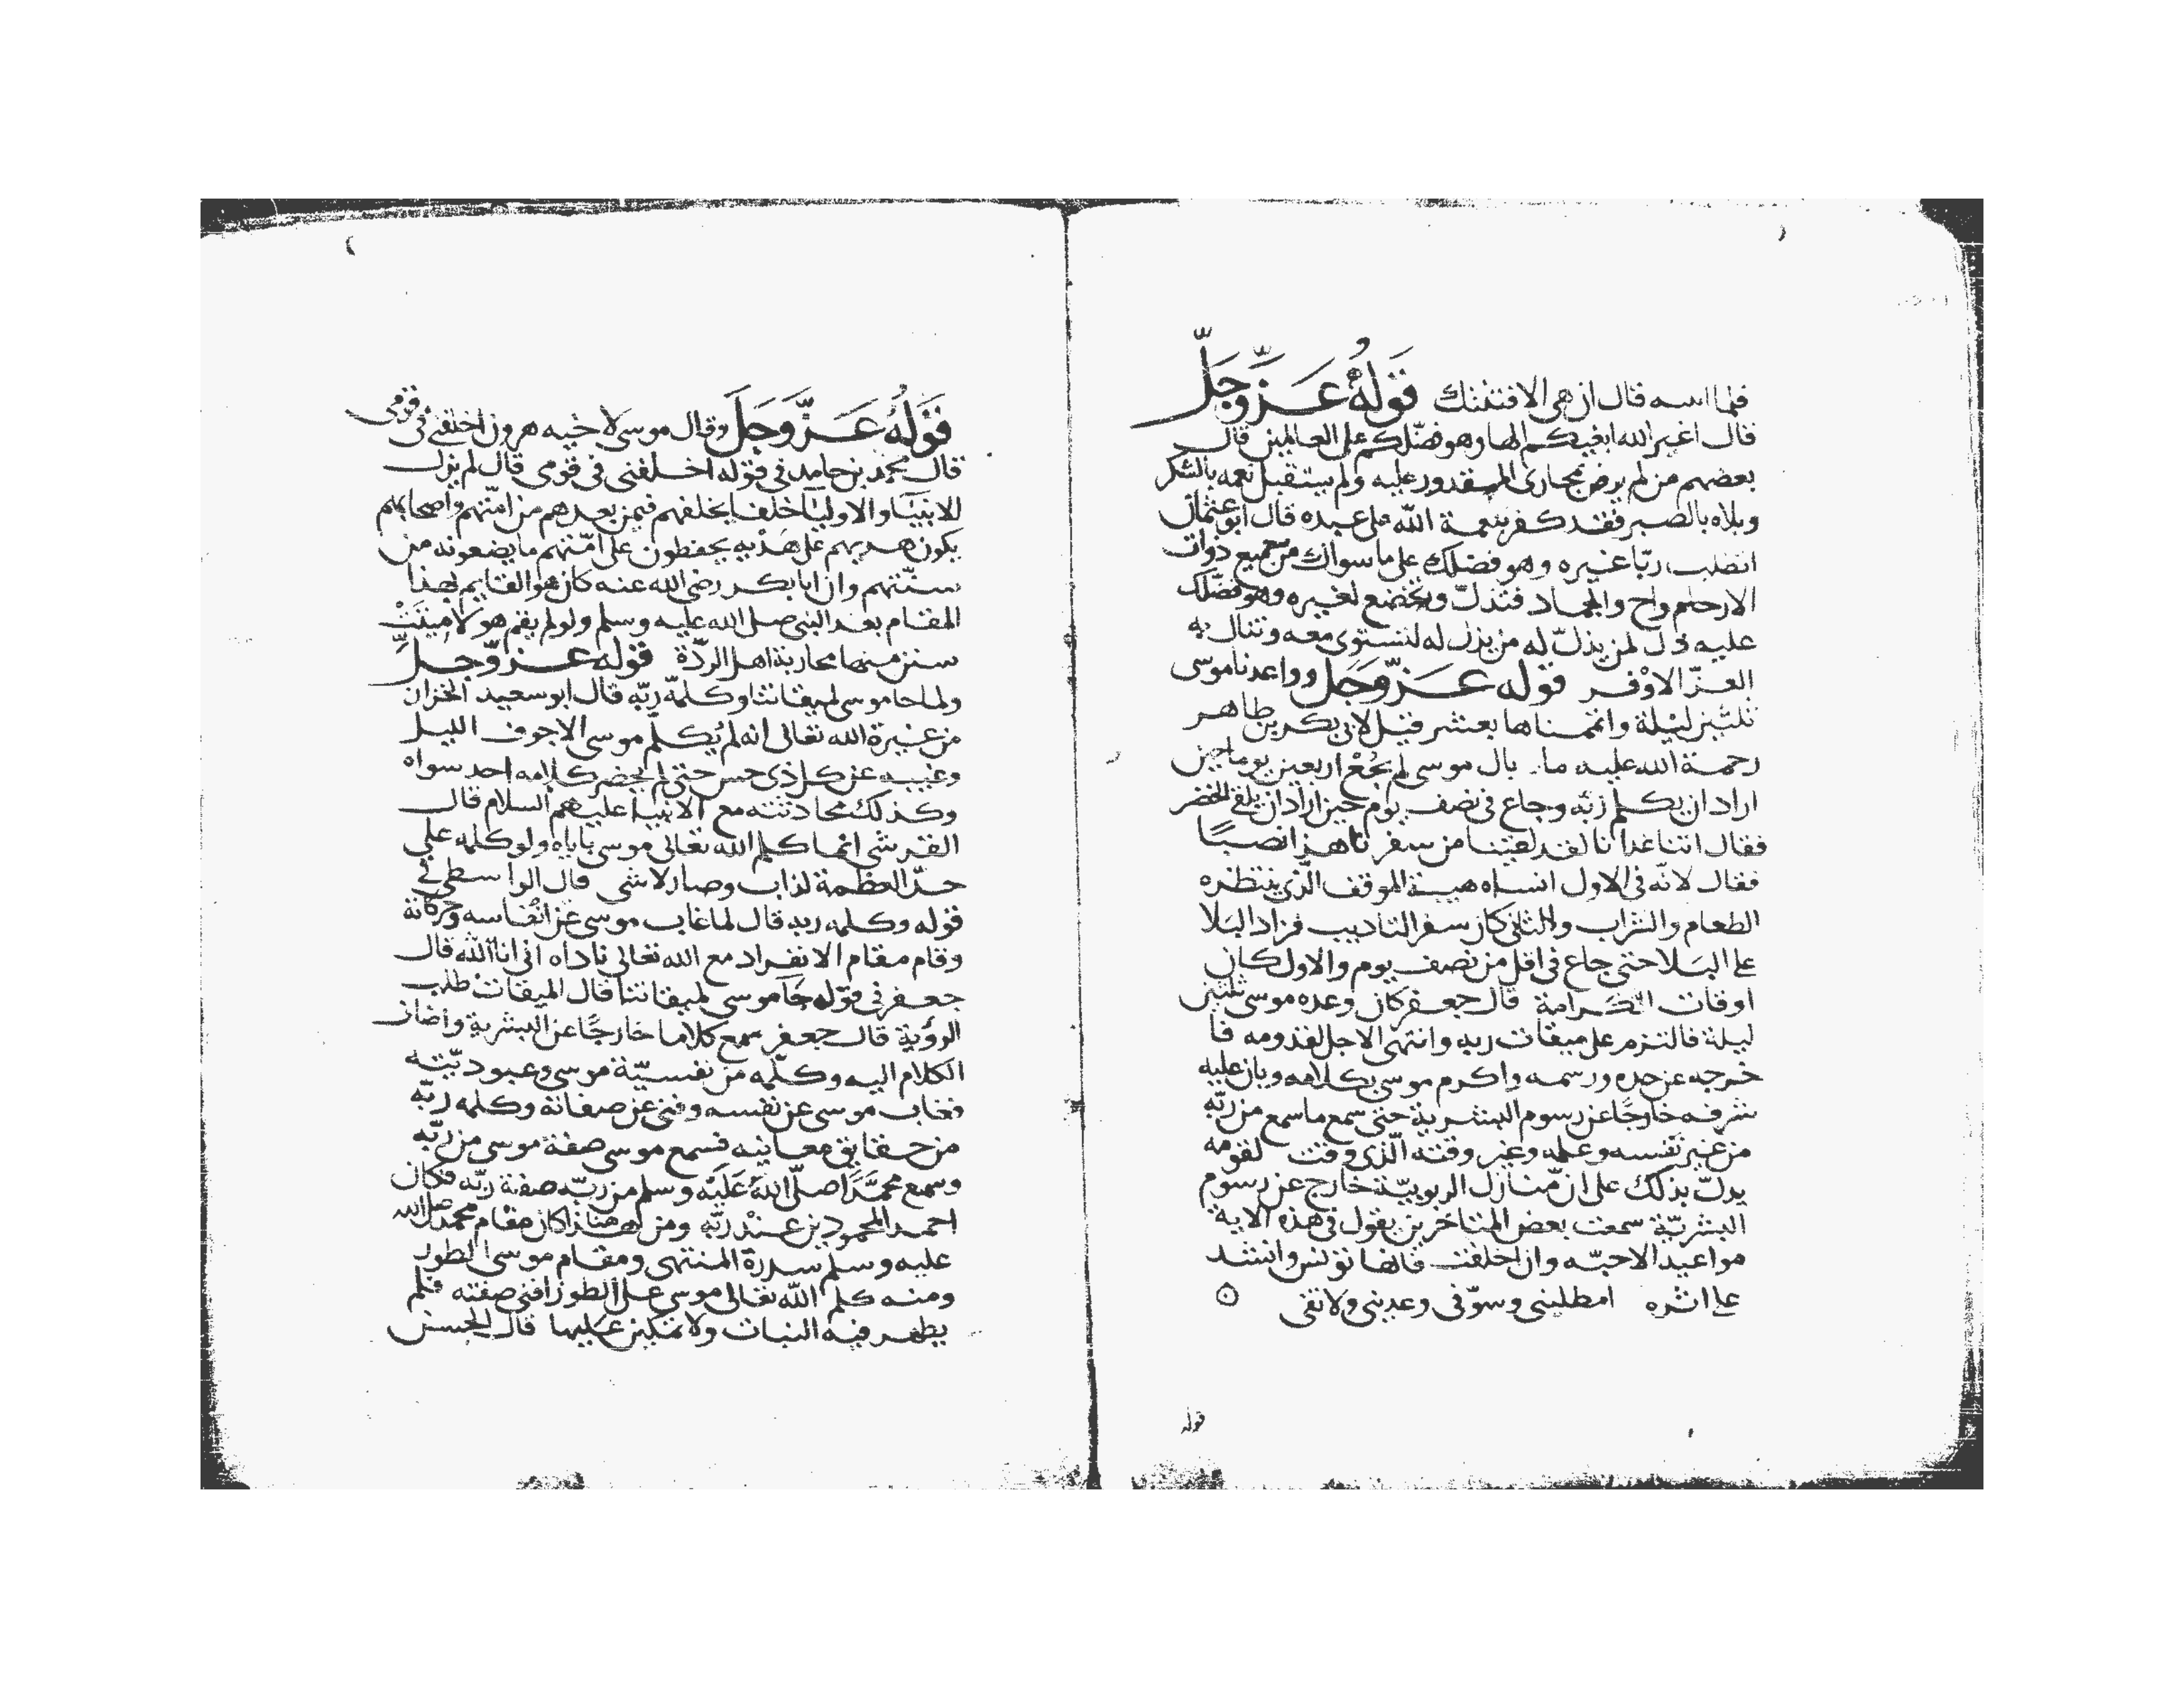 فلما اسه قال ان هي الا فتنتك قَوْلُهُ عَزَّ وَجَلَّ
قال اغير الله ابغيكم الها وهو فضّلكم على العالمين قال
بعضهم من لم يرض بمجارى المقدور عليه ولم يستقبل نعمه بالشكر
وبلاه بالصبر فقد كفر بنعمة الله على عبده قال ابو عثمان
اتطلب ربّا غيره وهو فضلك على ما سواك من جميع ذوات
الارحام واح والجماد فتذلّ وتخضع لغيره وهو فضّلك
عليه ذل لمن يذلّ له من يذل له لتستوى معه وتنال به
العزّ الاوْفر قوله عَزَّ وَجَل وواعدنا موسى
ثلثين ليلة واتممناها بعشر قيل لابى بكر بن طاهر
رحمة الله عليه ما بال موسى لم يَجُعْ اربعين يوما حين
اراد ان يكلم ربّه وجاع فى نصف يوم حين اراد ان يلقى الخضر
فقال اتنا غدانا لقد لقينا من سفرنا هذا نصبًا
فقال لانّه فى الاول انساه هيبة الموقف الّذى ينتظره
الطعام والشراب والثانى كان سفر التاديب فزاد البَلا
على البَلا حتى جاع فى اقل من نصف يوم والاول كان
اوقات الكَرامة قال جعفر كان وعده موسى ثلثين
ليلة فالتزم على ميقات ربه وانتهى الاجل لقدومه فا
خرجه عن حده ورسمه واكرم موسى بكلامه وبان عليه
شرفه خارجًا عن رسوم البشرية حتى سمع ما سمع من ربّه
من غير نفسه وعلمه وغير وقته الّذى وقت لقومه
يدلّ بذلك على انّ منازل الربوبيّة خارج عن رسوم
البشريّة سمعت بعض المتاخرين يقول فى هذه الاية
مواعيد الاحبّه وان اخلفت فانها تونس وانشد
على اثره امطلينى وسوّفى وعدينى ولا تفى
قوله
قَوْلُهُ عَزَّ وَجَلَ وقال موسى لاخيه هرون اخلفنى فى قومى
قال محمد بن حامد فى قوله اخلفنى فى قومى قال لم يزل
للانبيَا والاوليَا خلفا يخلفهم فيمن بعدهم من امّتهم واصحابهم
يكون هديهم على هَدْيه يحفظون على امّتهم ما يضعونه من
سنّتهم وان ابا بكر رضى الله عنه كان هو القايم بهذا
المقام بعد النبى صلى الله عليه وسلم ولو لم يقم هو لاميتَتْ
سنن منها محاربة اهل الردّة قوله عزّ وّجلّ
ولما جا موسى لميقاتنا وكلمّه ربّه قال ابو سعيد الخزاز
من غيرة الله تعالى انه لم يُكلّم موسى الا جوف الليل
وغيبه عن كل ذى حس حتى لم يحضر كلامه احد سواه
وكذلك محادثته مع الانبيا عليهم السلام قال
القرشى انما كلم الله تعالى موسى باياه ولو كلمه على
حدّ العظمة لذاب وصار لا شى قال الواسطى فى
قوله وكلمه ربه قال لما غاب موسى عن انْفاسه وحركاته
وقام مقام الانفراد مع الله تعالى ناداه انى انا الله قال
جعفر فى قوله جَا موسى لميقاتنا قال الميقات طلب
الرؤية قال جعفر سمع كلاما خارجًا عن البشرية واضاف
الكلام اليه وكلّمه من نفسيّة موسى وعبوديّته
فغاب موسى عن نفسه وفنى عن صفاته وكلمه ربّه
من حقايق معانيه فسمع موسى صفة موسى من ربّه
وسمع محمّدًا صلّى اللهُ عَلَيْه وسلم من ربّه صفة ربّه فكان
احمد المحمودين عنْد ربّه ومن هاهنا كان مقام محمد صلى الله
عليه وسلم سدرة المنتهى ومقام موسى الطور
ومنه كلم الله تعالى موسى على الطور افنى صفته فلم
يظهر فيه النبات ولا تمكين عليها قال الحسن